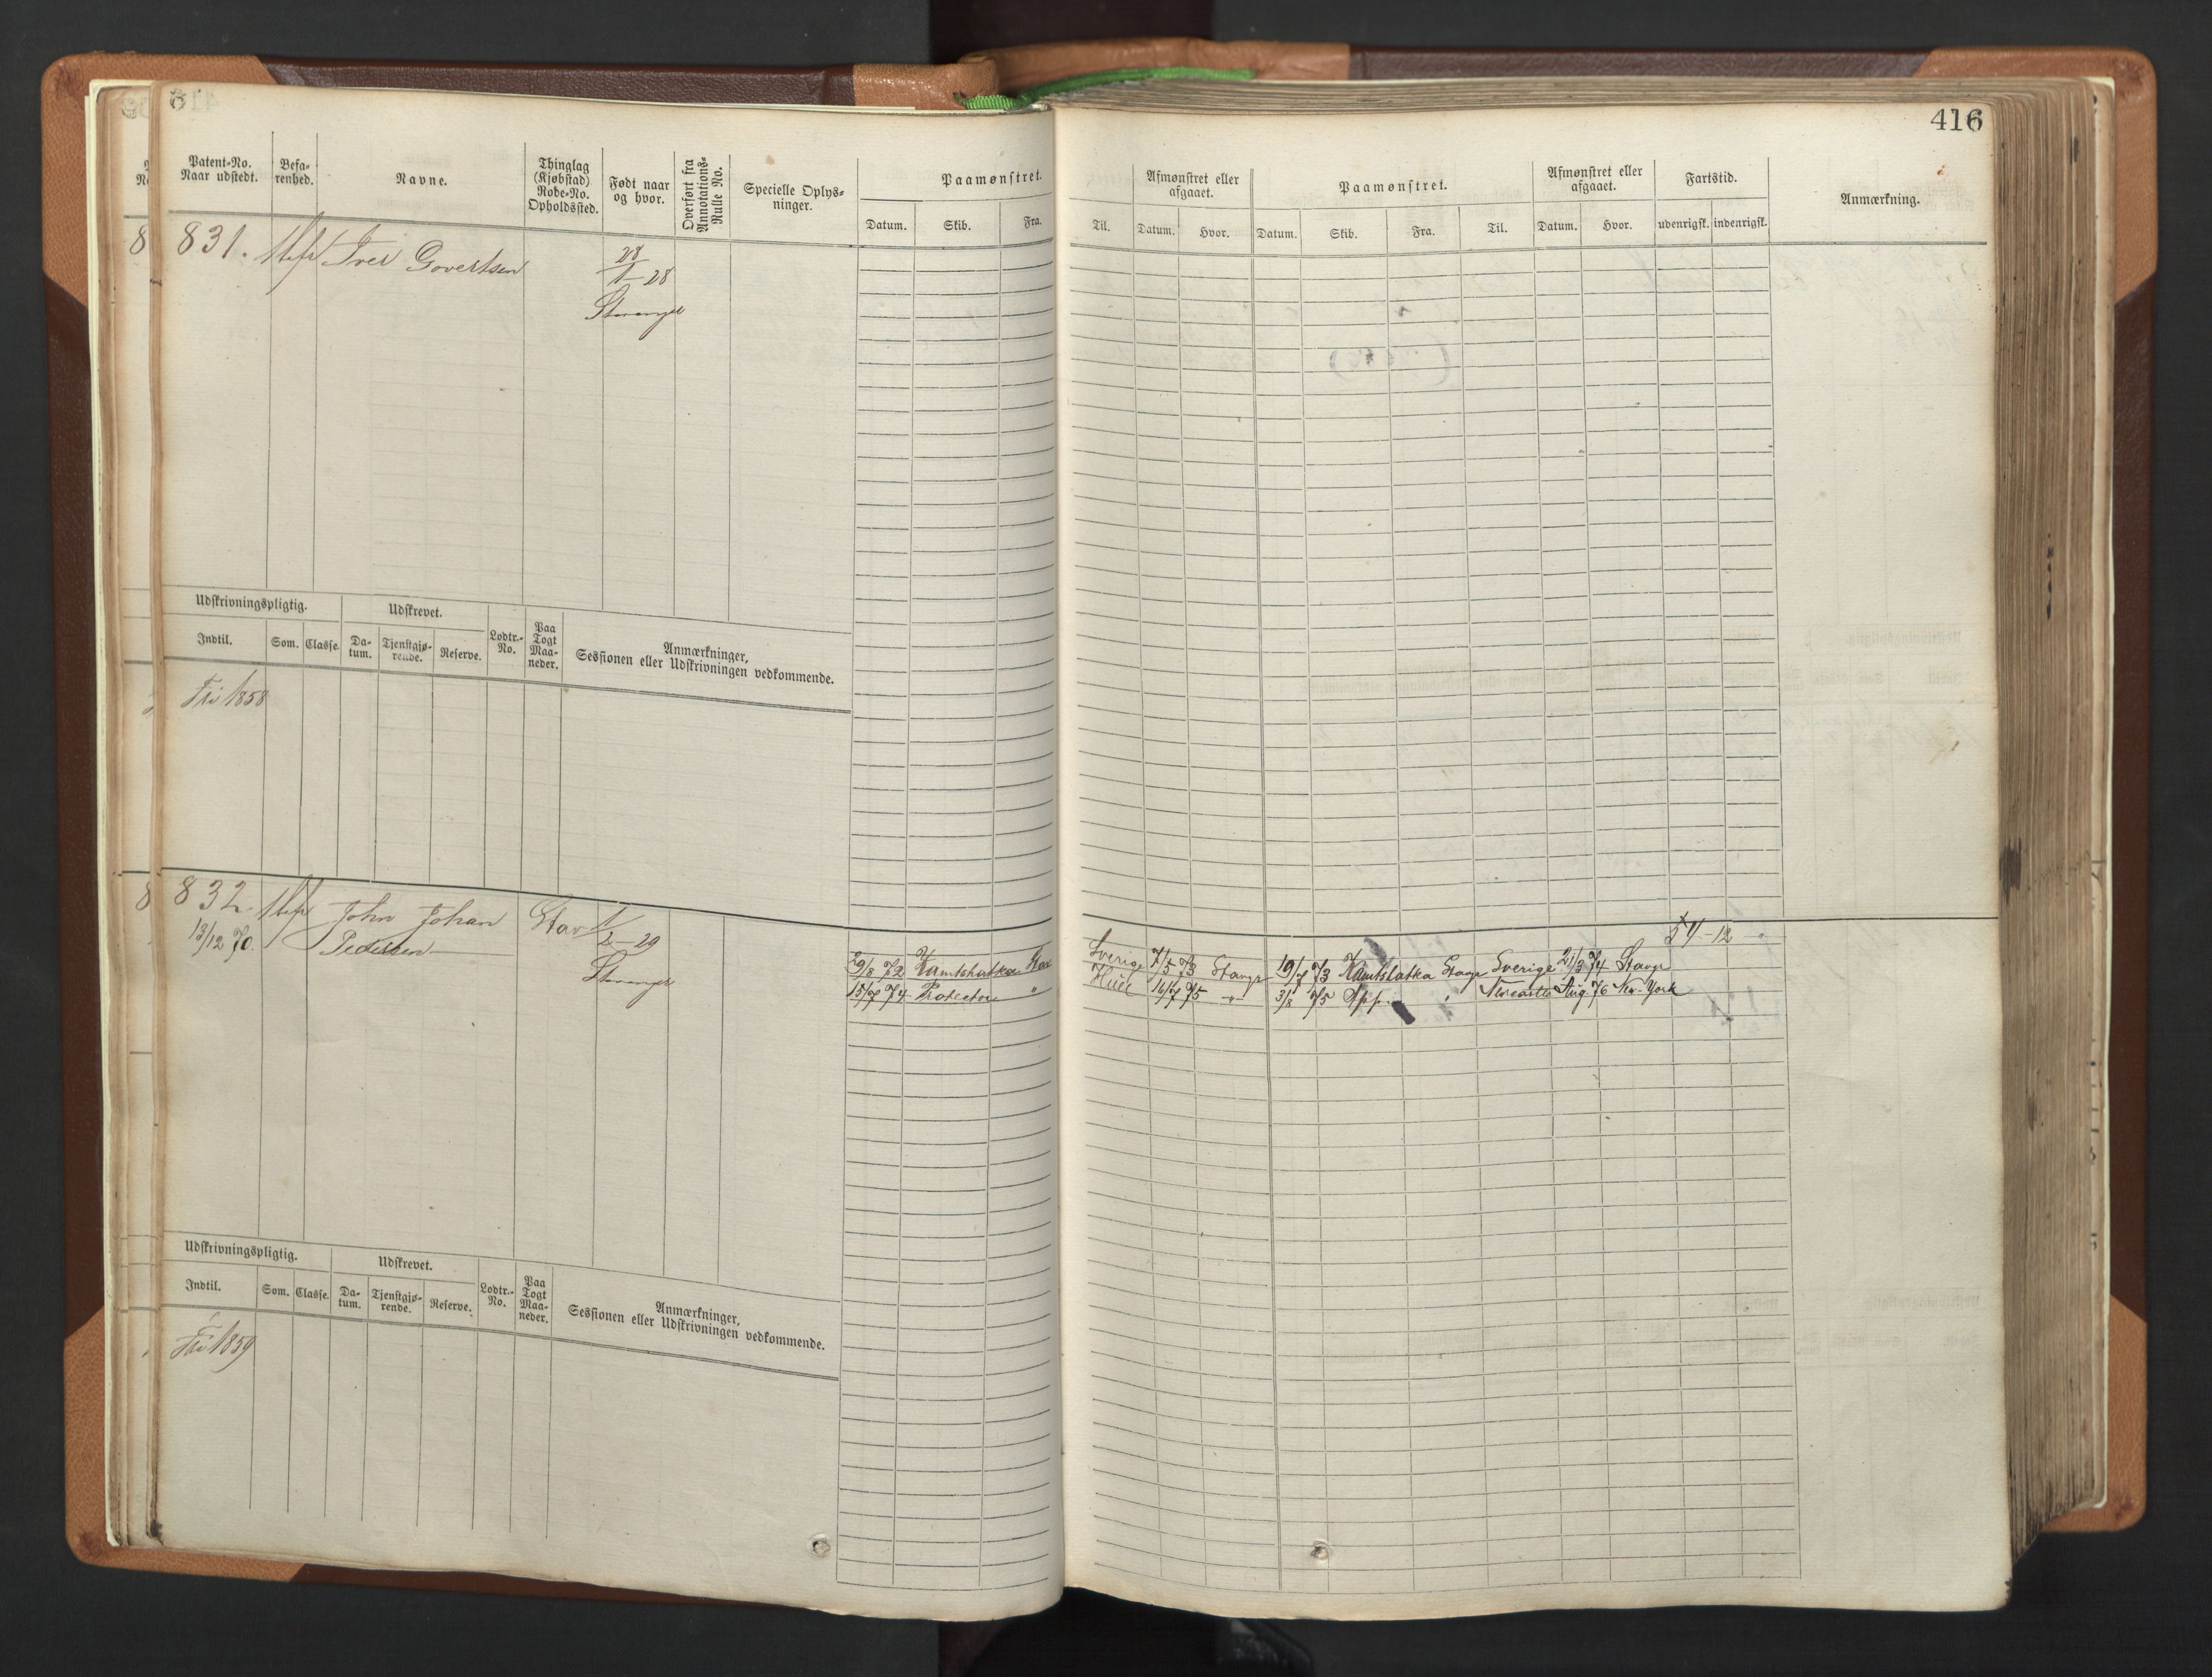 416
Patent-No. Naar udstedt.
Befa-renhed.
Navne.
Thinglag (Kjøbstad) Rode-No. Opholdssted.
Født naar og hvor.
Overført fra Annotations-Rulle No.
Specielle Oplys-ninger.
Paamønstret.
Datum. Skib. Fra.
Til.
Afmønstret eller afgaaet.
Datum. Hvor.
Paamønstret.
Datum. Skib. Fra. Til.
Afmønstret eller afgaaet.
Datum. Hvor.
Fartstid.
udenrigsk. indenrigsk.
Anmærkning.
831. Iver Govertsen 28/1-28
Stavanger
Udskrivningspligtig. Udskrevet.
Indtil. Som. Classe. Da-tum. Tjenstgjø-rende. Reserve. Lodtr.-No. Paa Togt Maa-neder.
Anmærkninger,
Sessionen eller Udskrivningen vedkommende.
Fri 1858
832. John Johan Stav 1/2-29
13/12 70. Pedersen Stavanger
54-12 "
29/8 72 Kamtshatka Stav Sverige 7/5 73 Stavgr 19/7 73 Kamtslatka Stavgr Sverige 21/3 74 Stavgr
15/7 74 Protector " Hull 16/7 75 " 3/8 75 Opp. " Newcastle Aug. 76 New-York
Udskrivningspligtig. Udskrevet.
Indtil. Som. Classe. Da-tum. Tjenstgjø-rende. Reserve. Lodtr.-No. Paa Togt Maa-neder.
Anmærkninger,
Sessionen eller Udskrivningen vedkommende.
Fri 1859